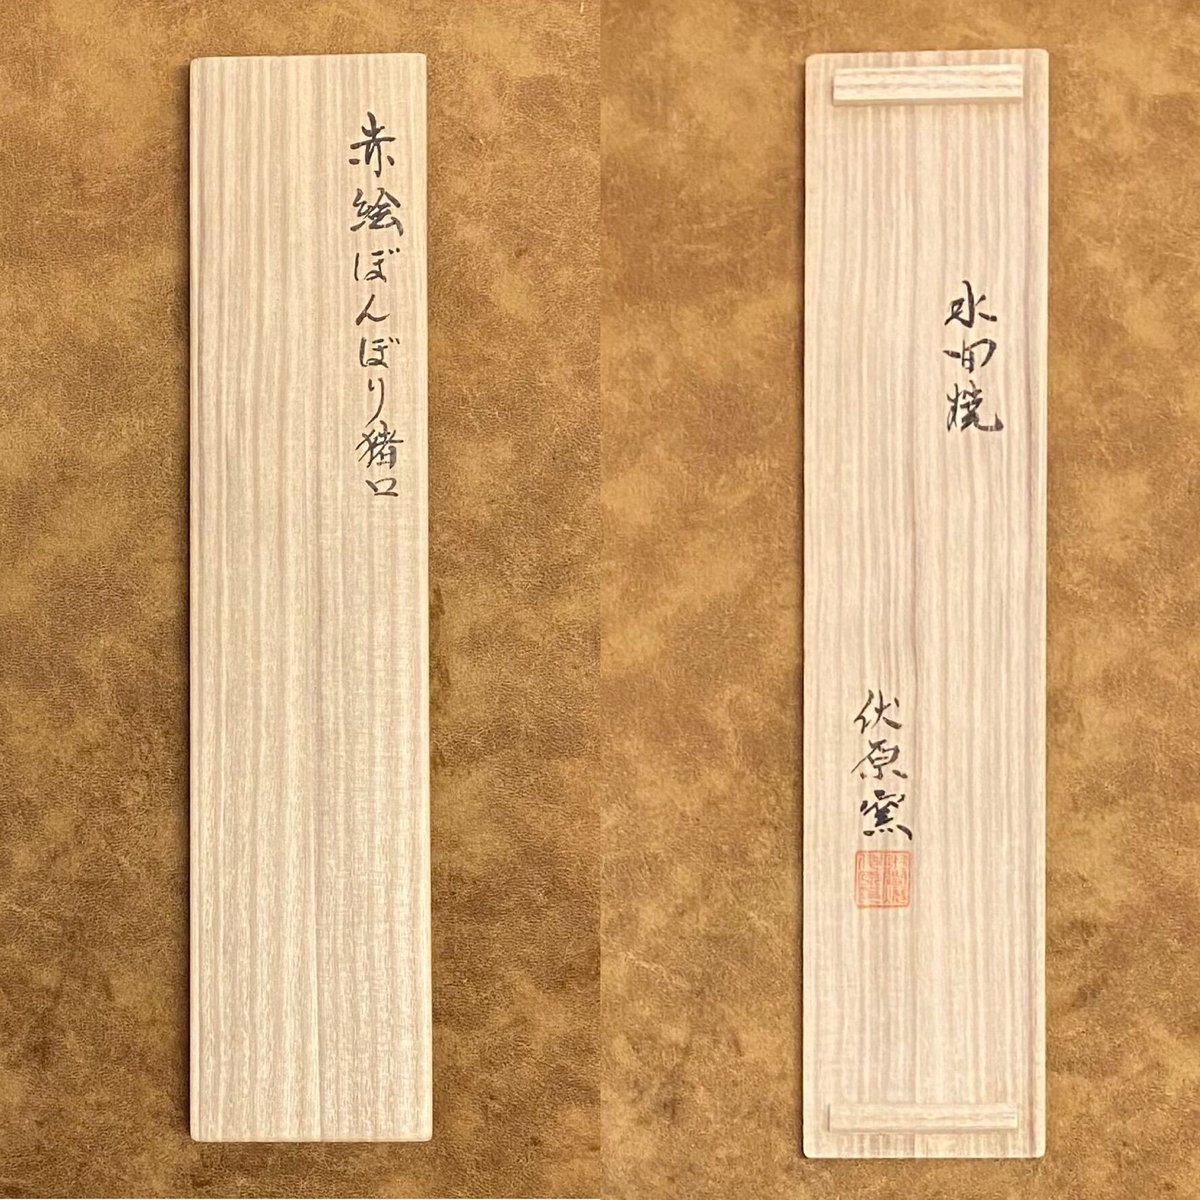 赤絵ぼんぼり猪口
水田焼
伏原窯